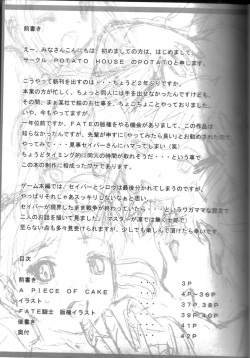 前書き
えー、みなさんこんにちは! 初めましての方は、はじめまして。
サークル POTATO HOUSE のPOTATOと申します。
こうやって新刊を出すのは・・・ちょうど2年ぶりですか。
本業の方が忙しく、ちょっと同人には手を出せなかったんですけども、
その間、まぁ某社で絵のお仕事を、ちょこちょことやっておりました。
いや、今もやってますが。
一年位前ですか、FATEの版権をやる機会がありまして、この作品は
知らなかったんですが、先輩が申すに（やってみたら良い）とお勧めされたので
やってみて・・・見事セイバーさんにハマってしまい（笑）
ちょうどタイミング的に間元の時間が取れそうだ・・・という事で
この本の制作に相成ったワケであります。
ゲーム本編では、セイバーとシロウは最後分かれてしまうのですが、
やっぱりそれじゃあスッキリしないので・・・
セイバーが限界したまま戦争が終わっていたら・・・というワガママな設定で
二人のお話を描いて見ました。
至らない点も多々見受けられますが、少しでも楽しんで頂けたら幸いです。
目次
前書き ・・・ 3P
A PIECE OF CAKE ・・・ 4P-36P
イラスト ・・・ 37P.38P
FATE騎士 版権イラスト ・・・ 39P.40P
後書き ・・・ 41P
奥付 ・・・ 42P